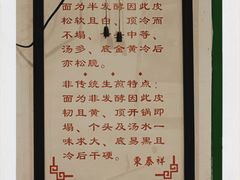 面为半发酵因此皮
松软且白、顶冷而
不塌、 中等、
汤多、底金黄冷后
亦松脆。
非传统生煎特点:
面为非发酵因此皮
韧且黄、顶开锅即
塌、个头及汤水一
味求大、底易黑且
冷后干硬。
东泰祥